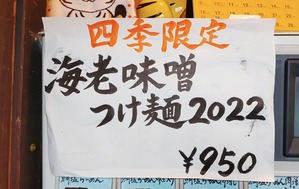 四季限定
海老味噌
つけ麺2022
¥950